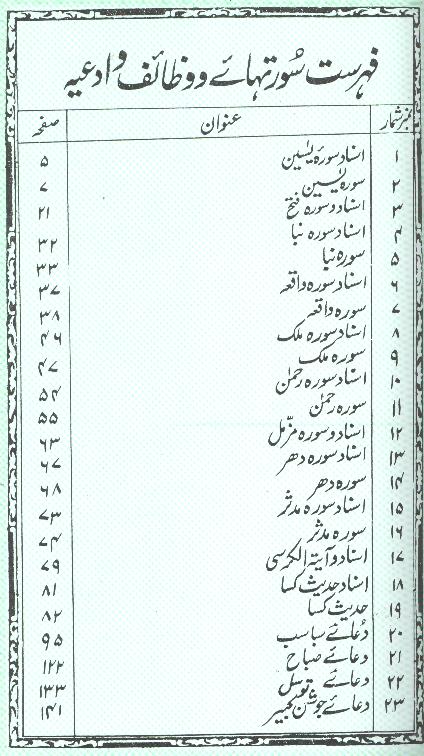 فہرست سُورتہائے و وظائف و ادعیہ
نمبر شمار عنوان صفحہ
۱ اسناد سورۂ یٰسین ۵
۲ سورہ یٰسین ۷
۳ اسناد و سورہ فتح ۲۱
۴ اسناد سورہ نبا ۳۲
۵ سورہ نبا ۳۳
۶ اسناد سورہ واقعہ ۳۷
۷ سورہ واقعہ ۳۸
۸ اسناد سورہ ملک ۴۶
۹ سورہ ملک ۴۷
۱۰ اسناد سورہ رحمٰن ۵۴
۱۱ سورہ رحمٰن ۵۵
۱۲ اسناد و سورہ مزّمل ۶۳
۱۳ اسناد سورہ دھر ۶۷
۱۴ سورہ دھر ۶۸
۱۵ اسناد سورہ مدثر ۷۳
۱۶ سورہ مدثر ۷۴
۱۷ اسناد و آیتہ الکرسی ۷۹
۱۸ اسناد حدیث کسا ۸۱
۱۹ حدیث کسا ۸۲
۲۰ دعائے سباسب ۹۵
۲۱ دعائے صباح ۱۲۲
۲۲ دعائے توسل ۱۳۳
۲۳ دعائے جوشن کبیر ۱۴۱